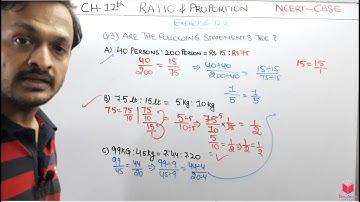 CH-12th RATIO & PROPORTION NCERT-CBSE
EXERCISE-12.2
Q3) ARE THE FOLLOWING STATEMENTS TRUE ?
A) 40 PERSONS : 200 PERSON = RS 15 : RS 75
40/200 = 15/75 ⇒ 40÷40/200÷40 = 15÷15/75÷15 15 = 15/1
1/5 = 1/5
B) 7.5 lt : 15 lt = 5 kg : 10 kg
7.5 = 75/10 | 75/10/15 = 5÷5/10÷5 ⇒
5/10 = 1/2 ⇒ 1/2 = 1/2
C) 99 KG : 45 kg = ₹44 : ₹20
99/45 = 44/20 ⇒ 99÷9/45÷9 = 44÷4/20÷4